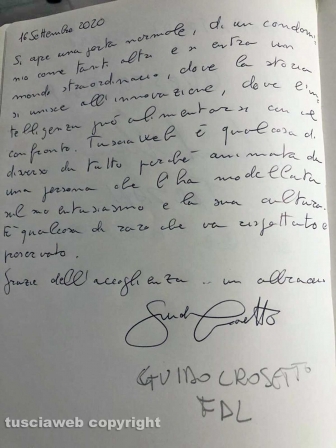 16 Settembre 2020
Si apre una porta normale, di un condomi
nio come tanti altri e si entra in un
mondo straordinario, dove la storia
si unisce all'innovazione, dove l'in
telligenza può alimentarsi con il
confronto. Tusciaweb è qualcosa di
diverso da tutto perché animata da
una persona che l'ha modellata
sul suo entusiasmo e la sua cultura.
È qualcosa di raro che va rispettato e
preservato.
Grazie dell'accoglienza.. un abbraccio
Guido Crosetto
GUIDO CROSETTO
FDL
tusciaweb copyright